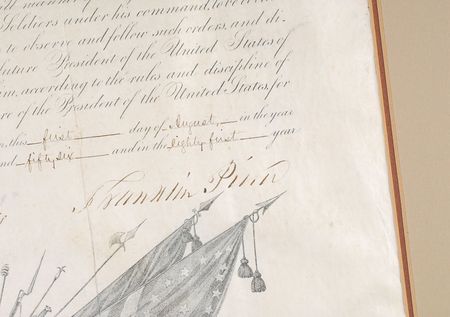 Soldiers under his command, to be
to observe and follow such orders, and di-
future President of the United States of
according to the rules and discipline of
of the President of the United States for
this first day of August, in the year
fifty six and in the eighty first year
Franklin Pierce